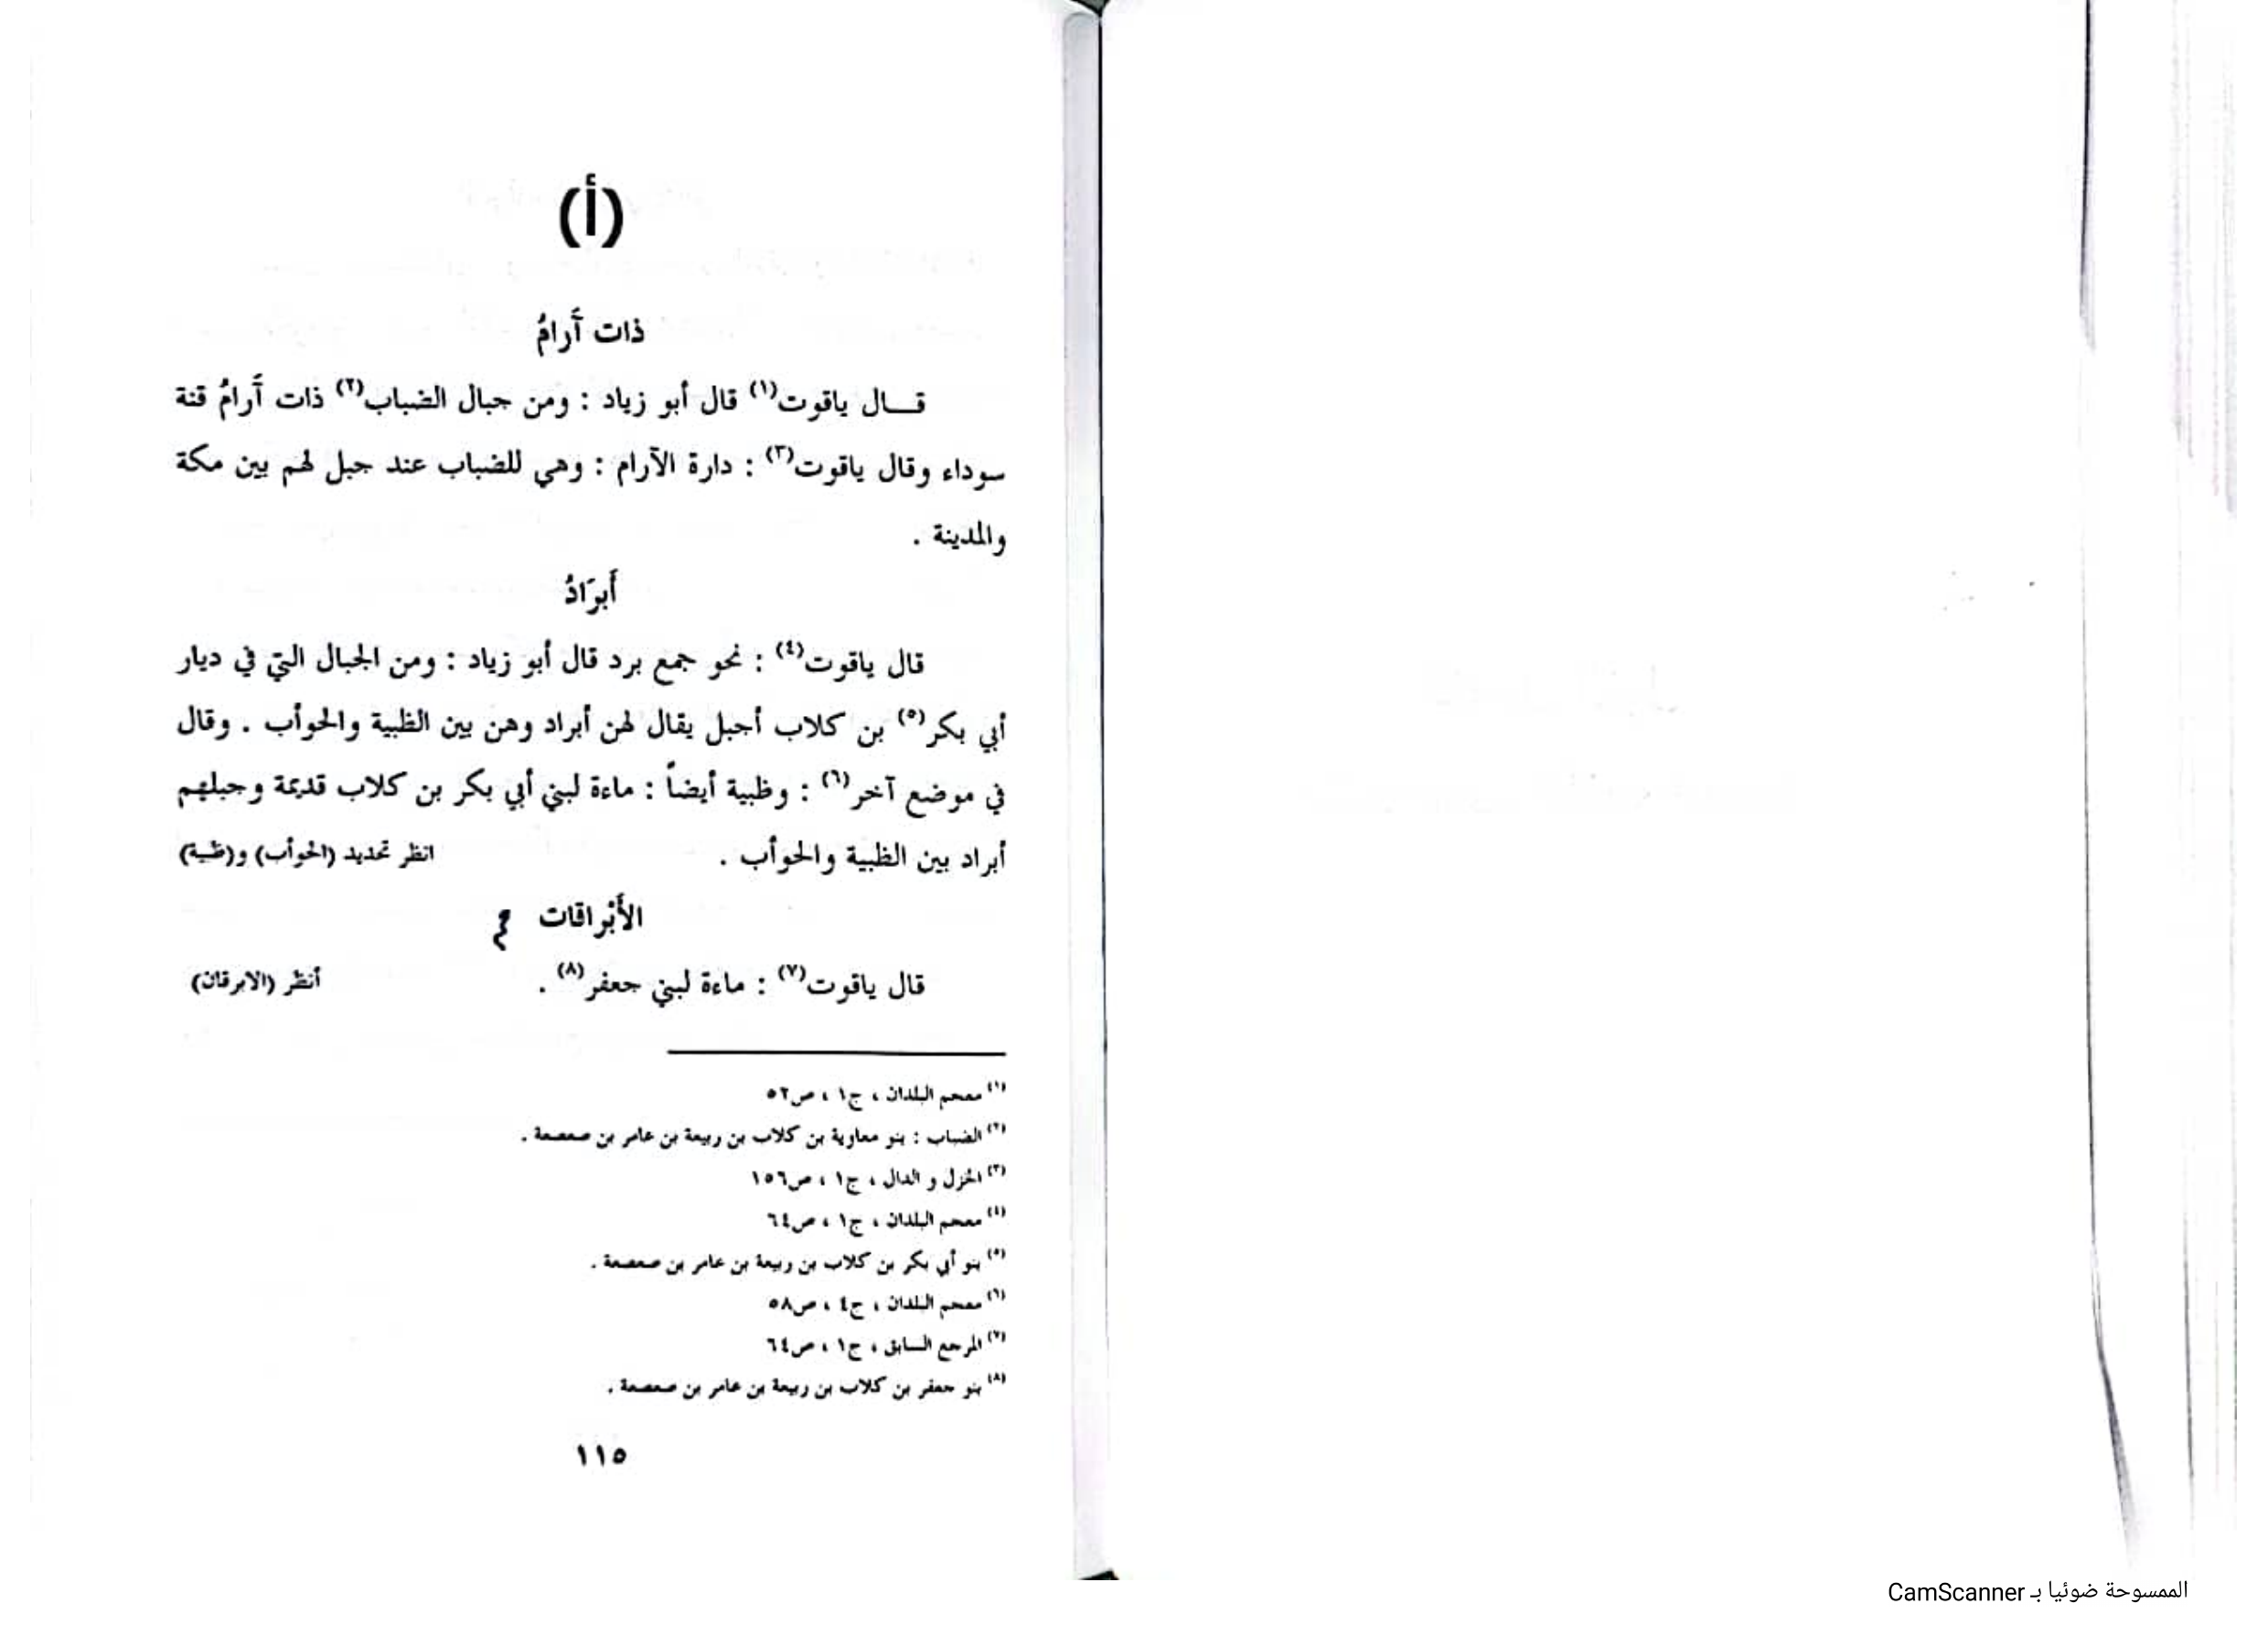 (أ)
ذات أَرامُ
قـــال ياقوت(١) قال أبو زياد : ومن جبال الضباب(٢) ذات أَرامُ قنة
سوداء وقال ياقوت(٣) : دارة الآرام : وهي للضباب عند جبل لهم بين مكة
والمدينة .
أَبرَادُ
قال ياقوت(٤) : نحو جمع برد قال أبو زياد : ومن الجبال التي في ديار
أبي بكر(٥) بن كلاب أجبل يقال لهن أبراد وهن بين الظبية والحوأب . وقال
في موضع آخر(٦) : وظبية أيضاً : ماءة لبني أبي بكر بن كلاب قديمة وجبلهم
أبراد بين الظبية والحوأب . انظر تحديد (الحوأب) و(ظبية)
الأَبْراقات
قال ياقوت(٧) : ماءة لبني جعفر(٨) . أنظر (الابرقان)
(١) معجم البلدان ، ج١ ، ص٥٢
(٢) الضباب : بنو معاوية بن كلاب بن ربيعة بن عامر بن صعصعة .
(٣) الخزل و الدال ، ج١ ، ص١٥٦
(٤) معجم البلدان ، ج١ ، ص٦٤
(٥) بنو أبي بكر بن كلاب بن ربيعة بن عامر بن صعصعة .
(٦) معجم البلدان ، ج٤ ، ص٥٨
(٧) المرجع السابق ، ج١ ، ص٦٤
(٨) بنو جعفر بن كلاب بن ربيعة بن عامر بن صعصعة .
١١٥
الممسوحة ضوئيا بـ CamScanner